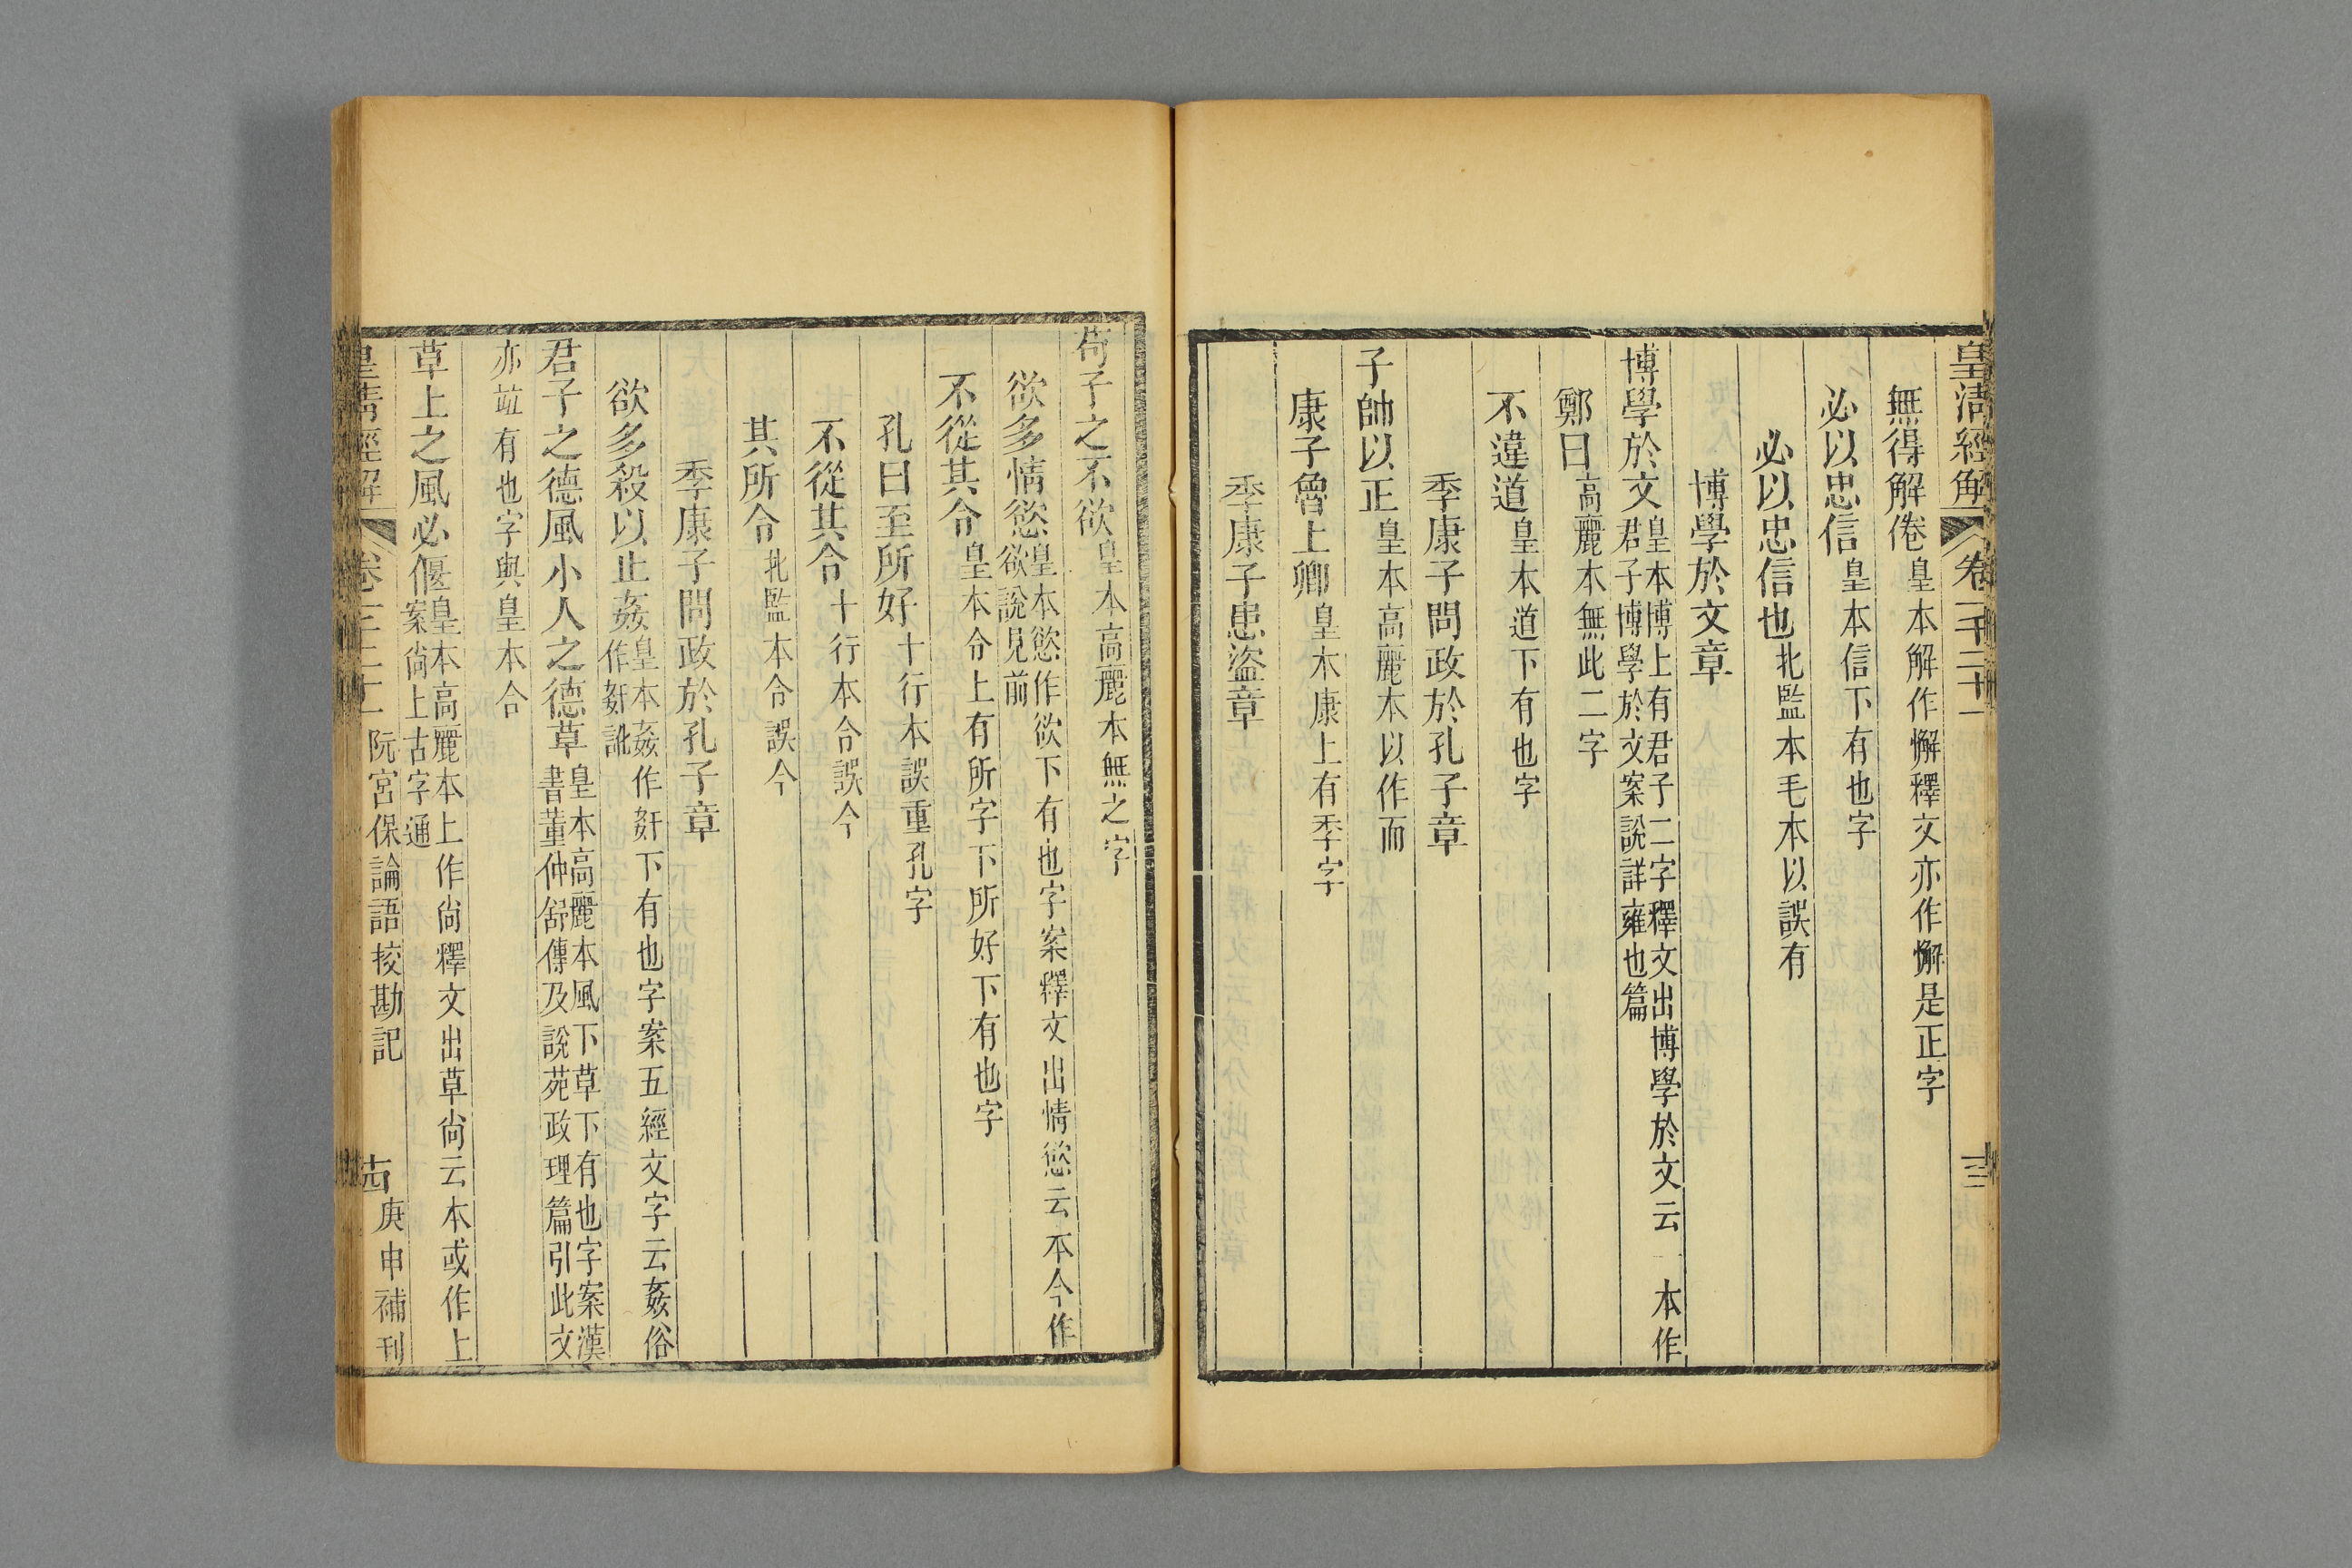 皇清經解 卷一千二十一 十三
無得解倦皇本解作懈釋文亦作懈是正字
必以忠信皇本信下有也字
必以忠信也北監本毛本以誤有
博學於文章
博學於文皇本博上有君子二字釋文出博學於文云一本作
君子博學於文案說詳雍也篇
鄭曰高麗本無此二字
不違道皇本道下有也字
季康子問政於孔子章
子帥以正皇本高麗本以作而
康子魯上卿皇本康上有季字
季康子患盜章
苟子之不欲皇本高麗本無之字
欲多情慾皇本慾作欲下有也字案釋文出情慾云本今作
欲說見前
不從其令皇本令上有所字下所好下有也字
孔曰至所好十行本誤重孔字
不從其令十行本令誤今
其所令北監本令誤今
季康子問政於孔子章
欲多殺以止姦皇本姦作姧下有也字案五經文字云姦俗
作姧訛
君子之德風小人之德草皇本高麗本風下草下有也字案漢
書董仲舒傳及說苑政理篇引此文
亦竝有也字與皇本合
草上之風必偃皇本高麗本上作尙釋文出草尙云本或作上
案尙上古字通
皇清經解 卷一千二十一 阮宮保論語挍勘記 十四 庚申補刊